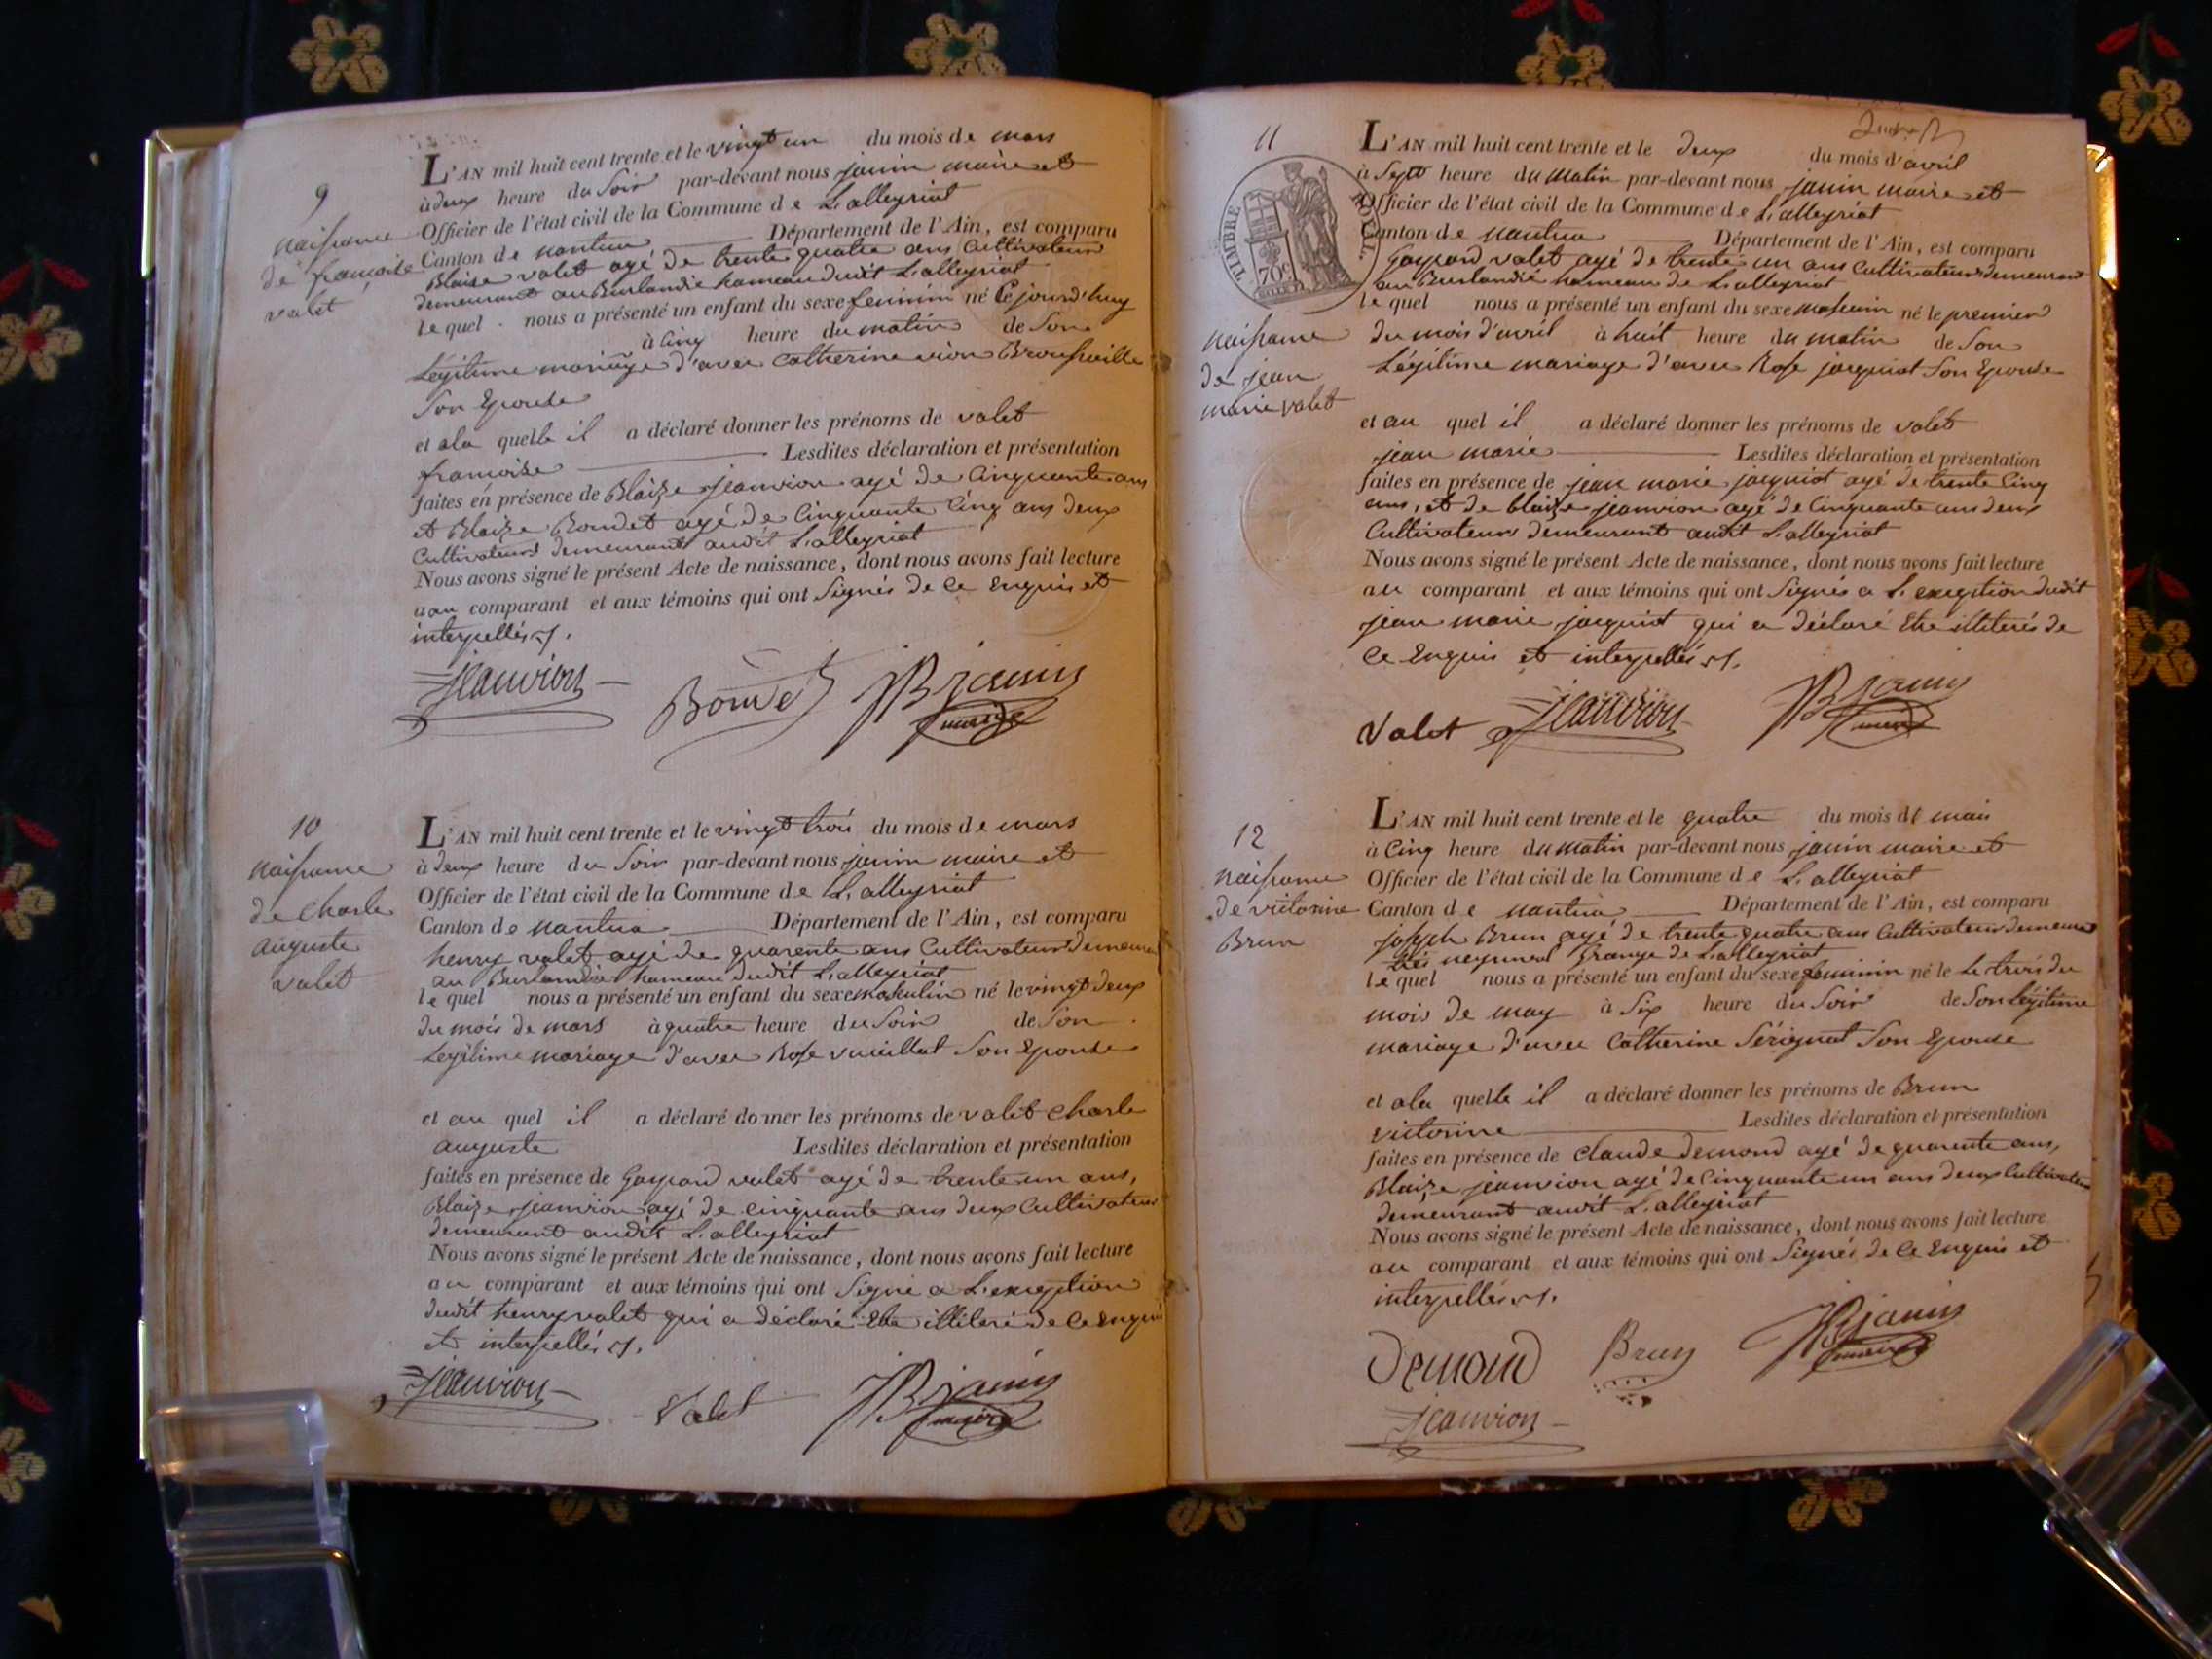 9
naissance
de françoise
valet
L'AN mil huit cent trente et le vingt un du mois de mars
à deux heure du Soir par-devant nous janin maire et
Officier de l'état civil de la Commune de L'alleyriat
Canton de nantua Département de l'Ain, est comparu
Blaise valet agé de trente quatre ans Cultivateur
demeurant au Burlandié hameau dudit L'alleyriat
le quel nous a présenté un enfant du sexe feminin né Ce jourd'huy
à Cinq heure du matin de Son
Légitime mariage d'avec Catherine
Son Epouse
et ala quelle il a déclaré donner les prénoms de valet
françoise Lesdites déclaration et présentation
faites en présence de Blaize jeanvion agé de Cinquante ans
et Blaize Bondet agé de Cinquante Cinq ans deux
Cultivateurs demeurant audit L'alleyriat
Nous avons signé le présent Acte de naissance, dont nous avons fait lecture
au comparant et aux témoins qui ont Signés de Ce Enquis et
interpellés
jeanvion JB janin
maire
10
naissance
de Charle
auguste
valet
L'AN mil huit cent trente et le vingt trois du mois de mars
à deux heure du Soir par-devant nous janin maire et
Officier de l'état civil de la Commune de L'alleyriat
Canton de nantua Département de l'Ain, est comparu
henry valet agé de quarente ans Cultivateur
au Burlandié hameau dudit L'alleyriat
le quel nous a présenté un enfant du sexe maskulin né le vingt deux
du mois de mars à quatre heure du Soir de Son
Legitime mariage d'avec Rose vuaillat Son Epouse
et au quel il a déclaré donner les prénoms de valet Charle
auguste Lesdites déclaration et présentation
faites en présence de Gaspard valet agé de trente un ans,
Blaize jeanvion agé de cinquante ans deux Cultivateur
demeurant audit L'alleyriat
Nous avons signé le présent Acte de naissance, dont nous avons fait lecture
au comparant et aux témoins qui ont Signé a L'exeption
dudit henry valet qui a déclaré Etre illiteré de Ce enquis
et interpellés
jeanvion Valet JB janin
maire
11
TIMBRE ROYAL
70c
naissance
de jean
marie valet
L'AN mil huit cent trente et le deux du mois d'avril
à Sept heure du matin par-devant nous janin maire et
Officier de l'état civil de la Commune de L'alleyriat
Canton de nantua Département de l'Ain, est comparu
Gaspard valet agé de trente un ans Cultivateur demeurant
au Burlandié hameau de L'alleyriat
le quel nous a présenté un enfant du sexe né le premier
du mois d'avril à huit heure du matin de Son
Légitime mariage d'avec Rose jacquiot Son Epouse
et au quel il a déclaré donner les prénoms de valet
jean marie Lesdites déclaration et présentation
faites en présence de jean marie jacquiot agé de trente Cinq
ans, et de blaize jeanvion agé de Cinquante ans deux
Cultivateurs demeurant audit L'alleyriat
Nous avons signé le présent Acte de naissance, dont nous avons fait lecture
au comparant et aux témoins qui ont Signés a L'exeption dudit
jean marie jacquiot qui a déclaré Etre illiterés de
Ce Enquis et interpellés
Valet jeanvion JB janin
maire
12
naissance
de victorine
Brun
L'AN mil huit cent trente et le quatre du mois de mai
à Cinq heure du matin par-devant nous janin maire et
Officier de l'état civil de la Commune de L'alleyriat
Canton de nantua Département de l'Ain, est comparu
joseph Brun agé de trente quatre ans Cultivateur
Grange de L'alleyriat
le quel nous a présenté un enfant du sexe feminin né le Le trois du
mois de may à Six heure du Soir de Son Légitime
mariage d'avec Catherine Sérignat Son Epouse
et ala quelle il a déclaré donner les prénoms de Brun
victorine Lesdites déclaration et présentation
faites en présence de Claude demond agé de quarente ans,
Blaize jeanvion agé de Cinquante un ans deux Cultivateur
demeurant audit L'alleyriat
Nous avons signé le présent Acte de naissance, dont nous avons fait lecture
au comparant et aux témoins qui ont Signés de Ce Enquis et
interpellés
Demond Brun JB janin
maire
jeanvion